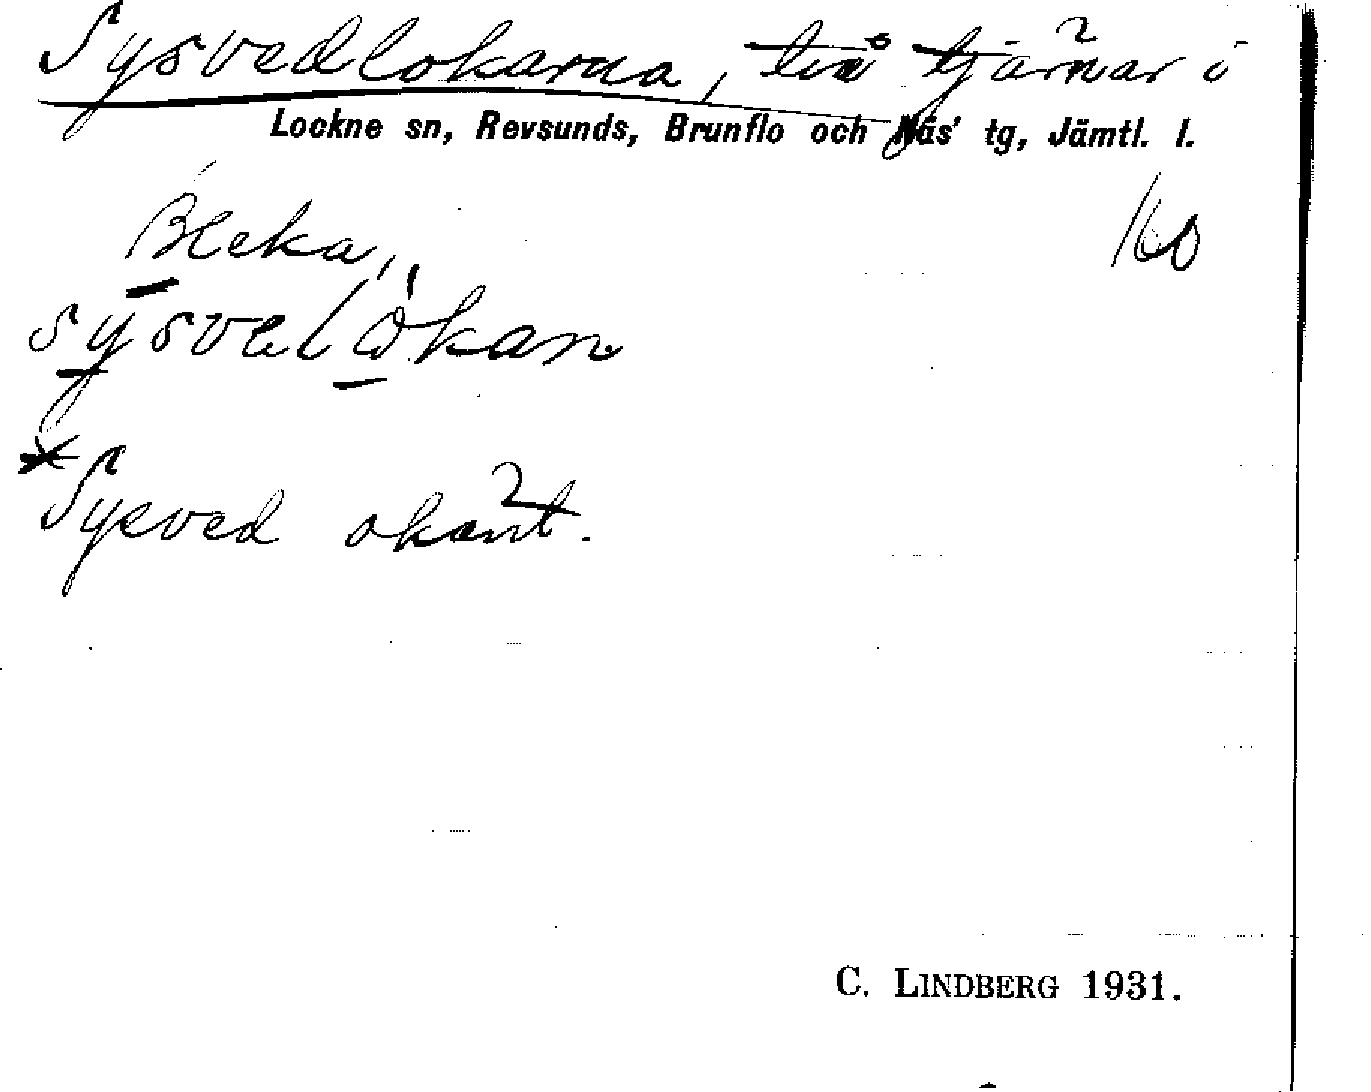 Sysvedlokarna, två tjärnar i
Lockne sn, Revsunds, Brunflo och Näs' tg, Jämtl. l.
Bleka,
160
sysvel'ökan
*Sysved okänt.
C. LINDBERG 1931.